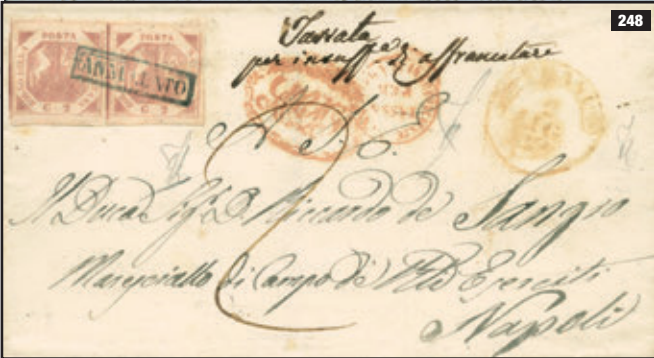 248
POSTA POSTA
ANNULLATO
G. 2 G. 2
Tassata
per insuffza di affrancatura
2
A S. E.
Il Duca Sigr D. Riccardo de Sangro
Maresciallo di Campo de' Rli Eserciti
Napoli